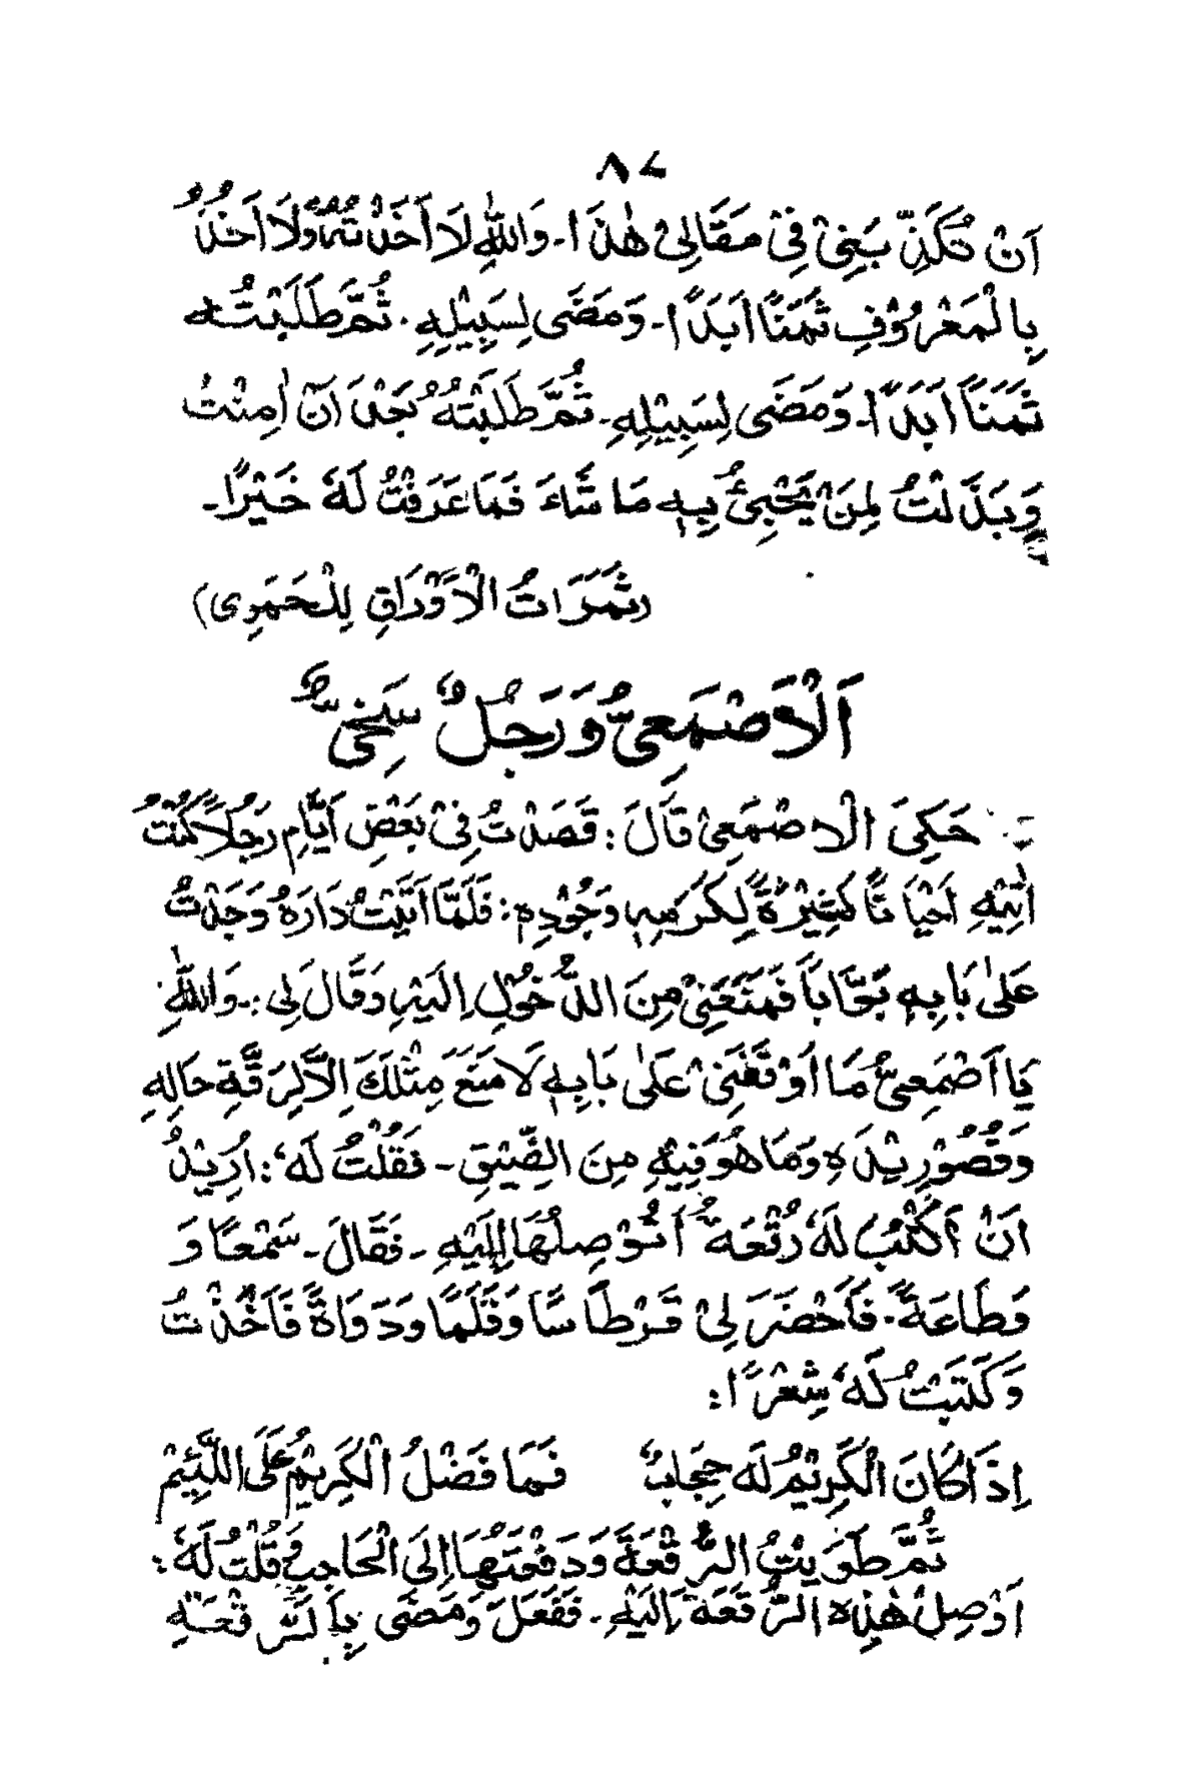 ٨٧
اَنْ تُكَذِّبَنِیْ فِیْ مَقَالِیْ هٰذَا۔ وَاللّٰهِ لَا اَخَذْتُهٗ وَلَا اَخُذُ
بِالْمَعْرُوْفِ ثَمَنًا اَبَدًا۔ وَمَضَی لِسَبِیْلِهٖ۔ ثُمَّ طَلَبْتُهٗ
ثَمَنًا اَبَدًا۔ وَمَضَی لِسَبِیْلِهٖ۔ ثُمَّ طَلَبْتُهٗ بَعْدَ اَنْ اٰمِنْتُ
وَبَذَلْتُ لِمَنْ یَّجِیْئُ بِهٖ مَا شَاءَ فَمَا عَرَفْتُ لَهٗ خَیْرًا۔
(ثَمَرَاتُ الْاَوْرَاقِ لِلْحَمَوِی)
اَلْاَصْمَعِیُّ وَرَجُلٌ سَخِیٌّ
حَکِیَ الْاَصْمَعِیْ قَالَ: قَصَدْتُ فِیْ بَعْضِ اَیَّامِ رَجُلًا کُنْتُ
اٰتِیْهِ اَحْیَانًا کَثِیْرَةً لِکَرَمِهٖ وَجُوْدِهٖ: فَلَمَّا اَتَیْتُ دَارَهٗ وَجَدْتُ
عَلٰی بَابِهٖ بَوَّابًا فَمَنَعَنِیْ مِنَ الدُّخُوْلِ اِلَیْهِ وَقَالَ لِی:۔ وَاللّٰهِ
یَا اَصْمَعِیُّ مَا اَوْقَفَنِیْ عَلٰی بَابِهٖ لَامَنَعَ مِثْلَكَ اِلَّا لِرِقَّةِ حَالِهٖ
وَقُصُوْرِ یَدِهٖ وَمَا هُوَ فِیْهِ مِنَ الضِّیْقِ۔ فَقُلْتُ لَهٗ: اُرِیْدُ
اَنْ اَکْتُبَ لَهٗ رُقْعَةً اَتُوْصِلُهَا اِلَیْهِ۔ فَقَالَ۔ سَمْعًا وَ
وَطَاعَةً۔ فَاَحْضَرَ لِیْ قَرْطَاسًا وَقَلَمًا وَدَوَاةً فَاَخَذْتُ
وَکَتَبْتُ لَهٗ شِعْرًا:
اِذَا کَانَ الْکَرِیْمُ لَهٗ حِجَابٌ فَمَا فَضْلُ الْکَرِیْمِ عَلَی اللَّئِیْمِ
ثُمَّ طَوَیْتُ الرُّقْعَةَ وَدَفَعْتُهَا اِلَی الْحَاجِبِ وَقُلْتُ لَهٗ:
اَوْصِلْ هٰذِهِ الرُّقْعَةَ اِلَیْهِ۔ فَفَعَلَ وَمَضَی بِالرُّقْعَةِ